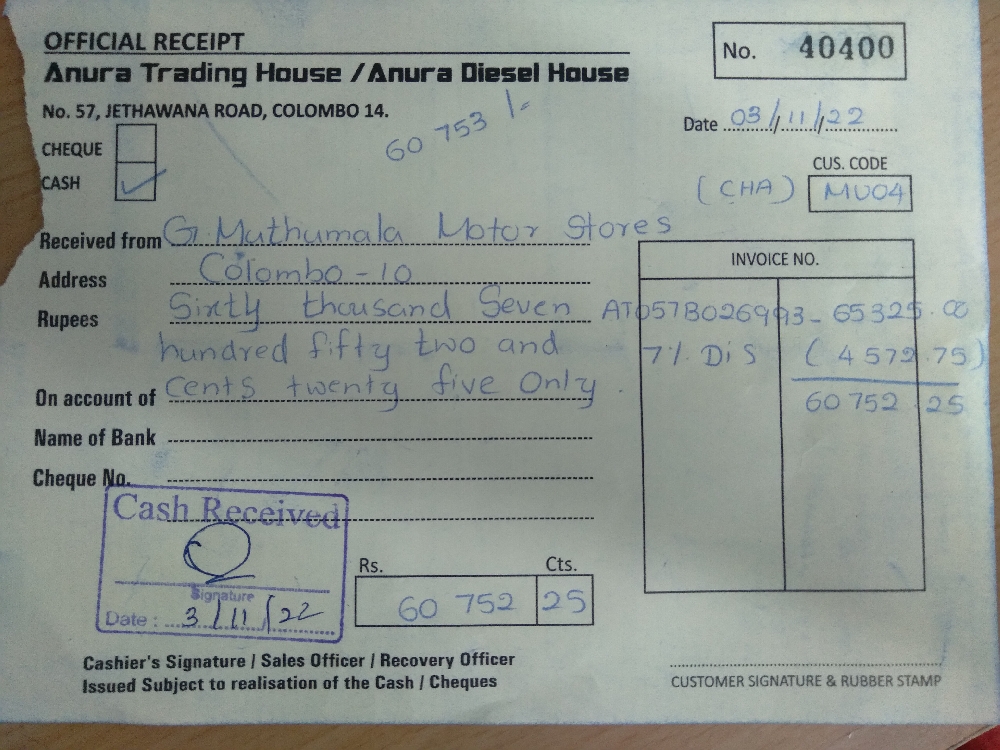 OFFICIAL RECEIPT
No. 40400
Anura Trading House / Anura Diesel House
No. 57, JETHAWANA ROAD, COLOMBO 14.
60 753 /-
Date 03/11/22
CHEQUE
CASH
CUS. CODE
(CHA) MU04
Received from G. Muthumala Motor Stores
INVOICE NO.
Address Colombo - 10
Rupees Sixty thousand Seven
AT057B026993 - 65325.00
hundred fifty two and
7% DiS (4 572.75)
On account of cents twenty five Only.
60 752 25
Name of Bank
Cheque No.
Cash Received
Signature
Date : 3/11/22
Rs. Cts.
60 752 25
Cashier's Signature / Sales Officer / Recovery Officer
Issued Subject to realisation of the Cash / Cheques
CUSTOMER SIGNATURE & RUBBER STAMP